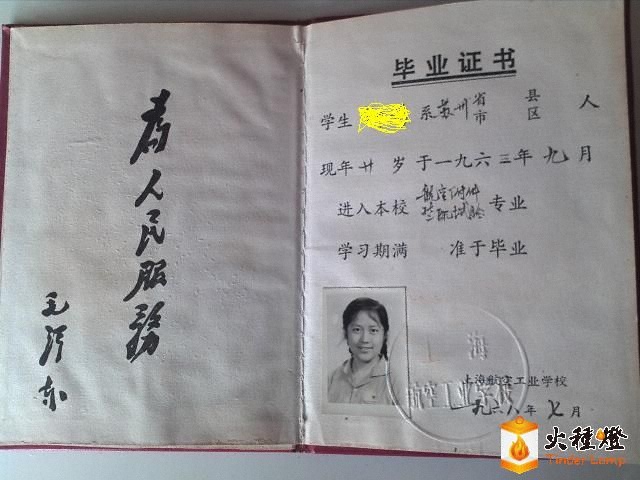 为人民服务
毛泽东
毕业证书
学生 系苏州省市 县区 人
现年廿岁于一九六三年九月
进入本校航空附件 专业
学习期满 准于毕业
上海航空工业学校
一九六八年七月
海
航空工业学校
火種燈
Tinder Lamp